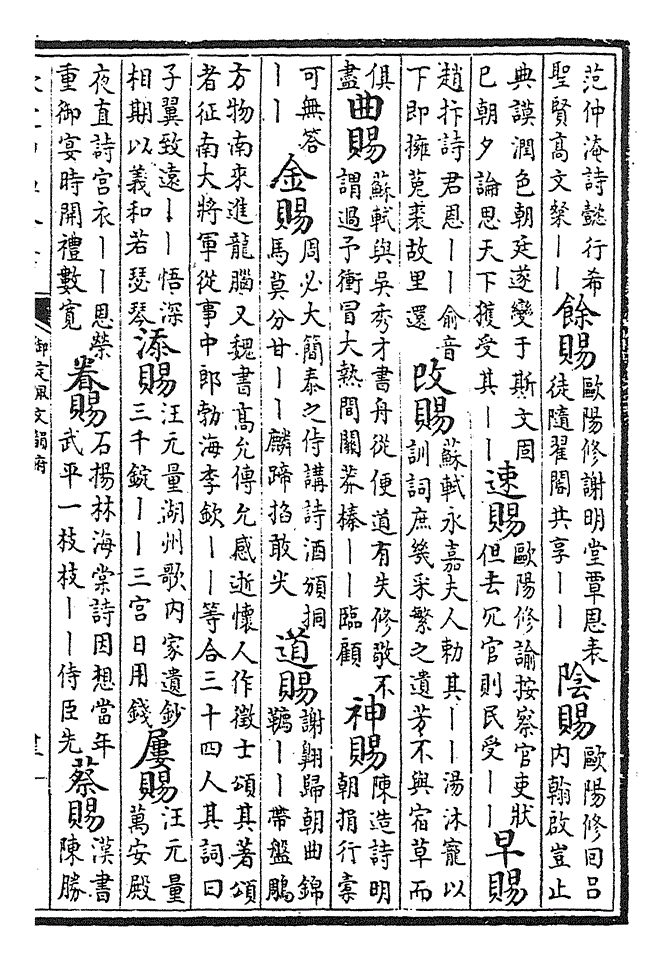 范仲淹詩懿行希
聖賢髙文粲丨丨
餘賜
歐陽修謝明堂覃恩表
徒隨翟閣共享丨丨
陰賜
歐陽修回吕
内翰啟豈止
典謨潤色朝廷遂變于斯文固
已朝夕論思天下獲受其丨丨
速賜
歐陽修論按察官吏狀
但去冗官則民受丨丨
早賜
趙抃詩君恩丨丨俞音
下即擁菟裘故里還
改賜
蘇軾永嘉夫人勅其丨丨湯沐寵以
訓詞庶幾采繁之遺芳不與宿草而
俱
盡
曲賜
蘇軾與吳秀才書舟從便道有失修敬不
謂過予衝冒大熱間關莽榛丨丨臨顧
神賜
陳造詩明
朝捐行橐
可無答
丨丨
金賜
周必大簡泰之侍講詩酒頒挏
馬莫分甘丨丨麟蹄掐敢先
道賜
謝翺歸朝曲錦
韉丨丨帶盤鵰
方物南來進龍腦又魏書髙允傳允感逝懷人作徵士頌其著頌
者征南大將軍從事中郎勃海李欽丨丨等合三十四人其詞曰
子翼致遠丨丨悟深
相期以義和若瑟琴
添賜
汪元量湖州歌内家遺鈔
三千錠丨丨三宫日用錢
屢賜
汪元量
萬安殿
夜直詩宫衣丨丨恩榮
重御宴時開禮數寛
眷賜
石揚林海棠詩因想當年
武平一枝枝丨丨侍臣先
蔡賜
漢書
陳勝
御定佩文韻府